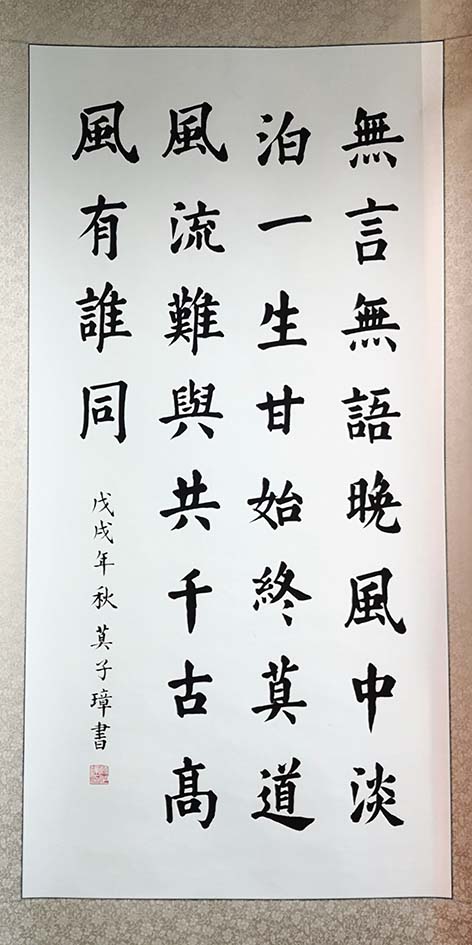 無言無語晚風中淡
泊一生甘始終莫道
風流難與共千古高
風有誰同
戊戌年秋莫子璋書